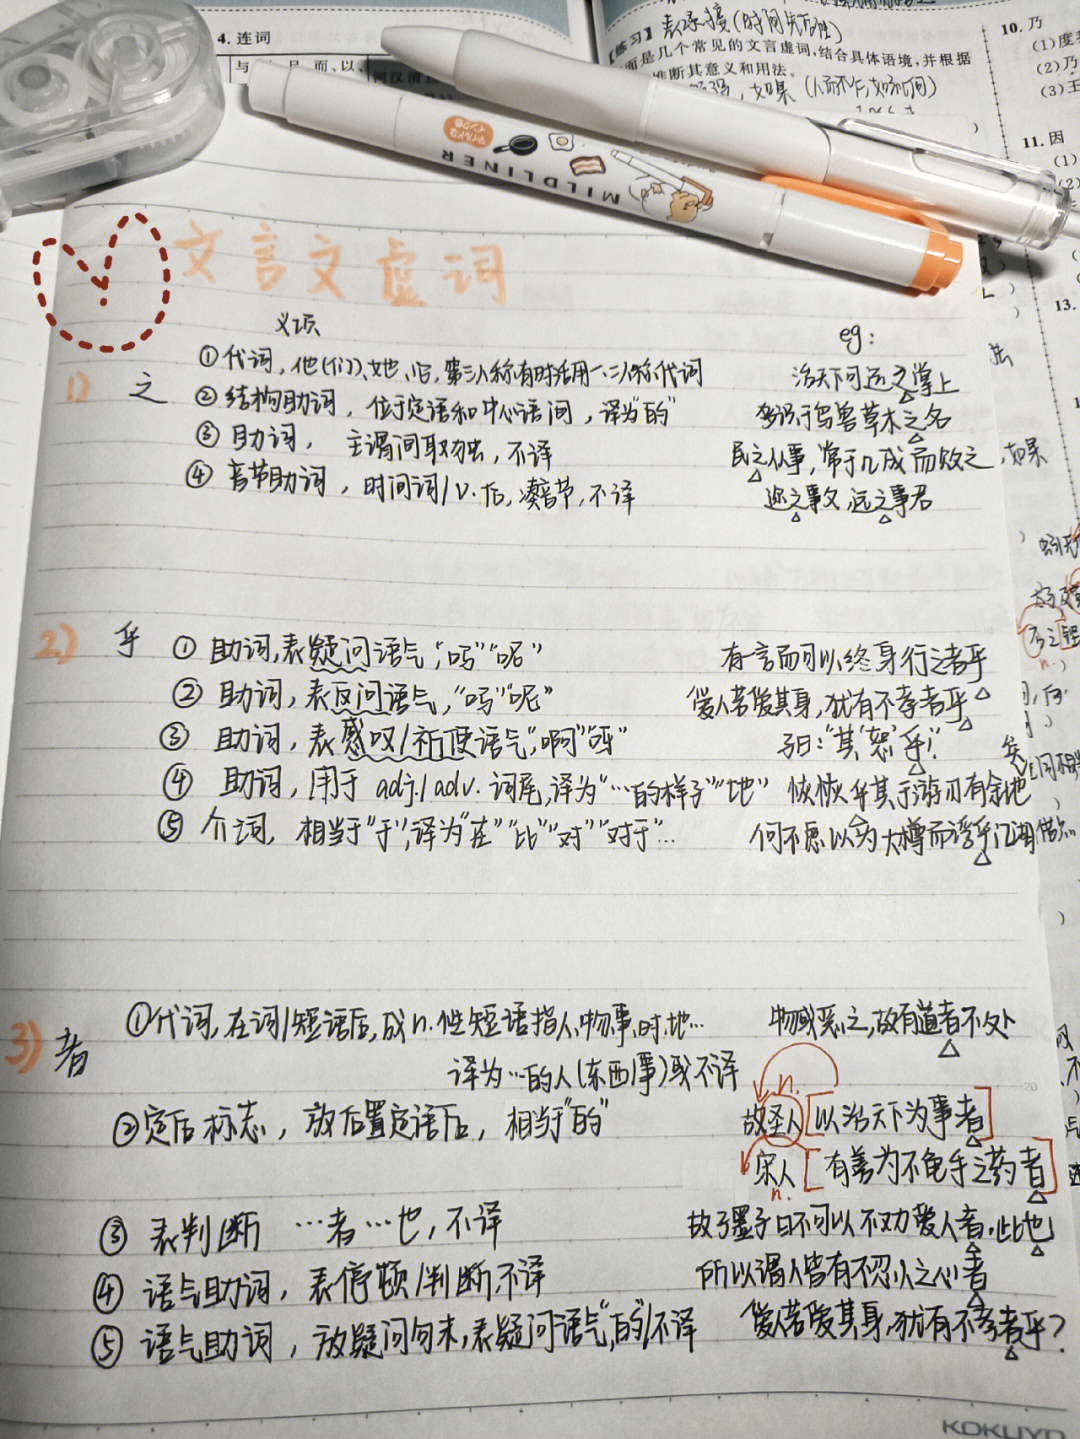 4. 连词
【练习】表承接(时间先后性)
面是几个常见的文言虚词,结合具体语境,并根据
推断其意义和用法。
如果(人而不仁,如礼何)
10. 乃
(2)乃
(3)王
11. 因
(1)
(2)
13.
MILDLINER
文言文虚词
义项
eg:
1) 之
①代词,他(们)、她、它,第三人称有时活用一、二人称代词 治天下可运之掌上
②结构助词,位于定语和中心语间,译为"的" 多识于鸟兽草木之名
③助词,主谓间取独,不译 民之从事,常于几成而败之
④音节助词,时间词/v.后,凑音节,不译 迩之事父,远之事君
2) 乎
①助词,表疑问语气,"吗""呢" 有一言而可以终身行之者乎
②助词,表反问语气,"吗""呢" 爱人若爱其身,犹有不孝者乎
③助词,表感叹/祈使语气,"啊""呀" 子曰:"其'恕'乎!"
④助词,用于adj./adv.词尾,译为"…的样子""地" 恢恢乎其于游刃有余地
⑤介词,相当于"于",译为"在""比""对""对于"… 何不虑以为大樽而浮乎江湖
3) 者
①代词,在词/短语后,成n.性短语指人、物、事、时、地… 物或恶之,故有道者不处
译为…的人(东西/事)或不译
②定后标志,放后置定语后,相当于"的" 故圣人[以治天下为事者]
n.
宋人[有善为不龟手之药者]
n.
③表判断 …者…也,不译 故子墨子曰不可以不劝爱人者,此也
④语气助词,表停顿/判断,不译 所以谓人皆有不忍人之心者
⑤语气助词,放疑问句末,表疑问语气,"的"/不译 爱人若爱其身,犹有不孝者乎?
20
KOKUYO